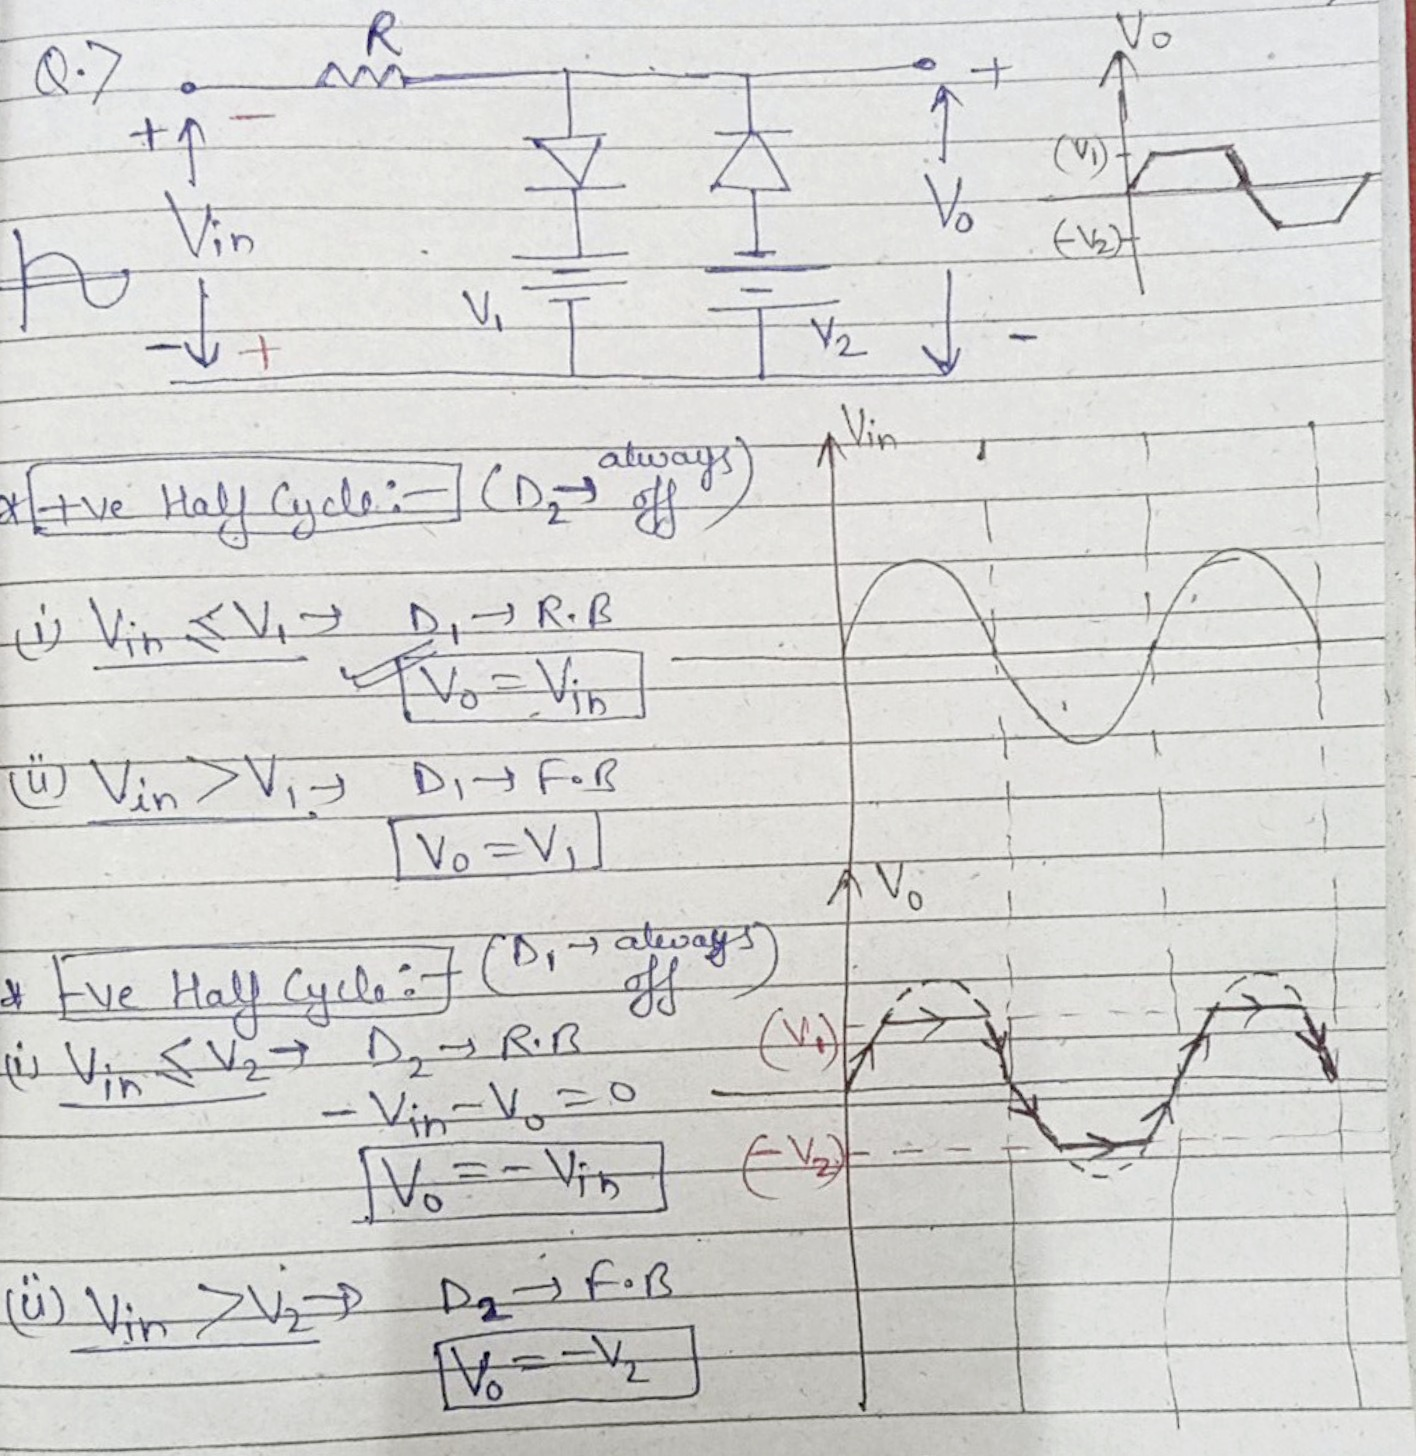 Q.7
R
+ −
Vin
− +
V₁
V₂
+
V₀
−
V₀
(V₁)
(-V₂)
Vin
* +ve Half Cycle:- (D₂→ always off)
(i) Vin ≤ V₁ → D₁ → R.B
V₀ = Vin
(ii) Vin > V₁ → D₁ → F.B
V₀ = V₁
V₀
(V₁)
(-V₂)
* -ve Half Cycle:- (D₁ → always off)
(i) Vin ≤ V₂ → D₂ → R.B
- Vin - V₀ = 0
V₀ = - Vin
(ii) Vin > V₂ → D₂ → F.B
V₀ = -V₂